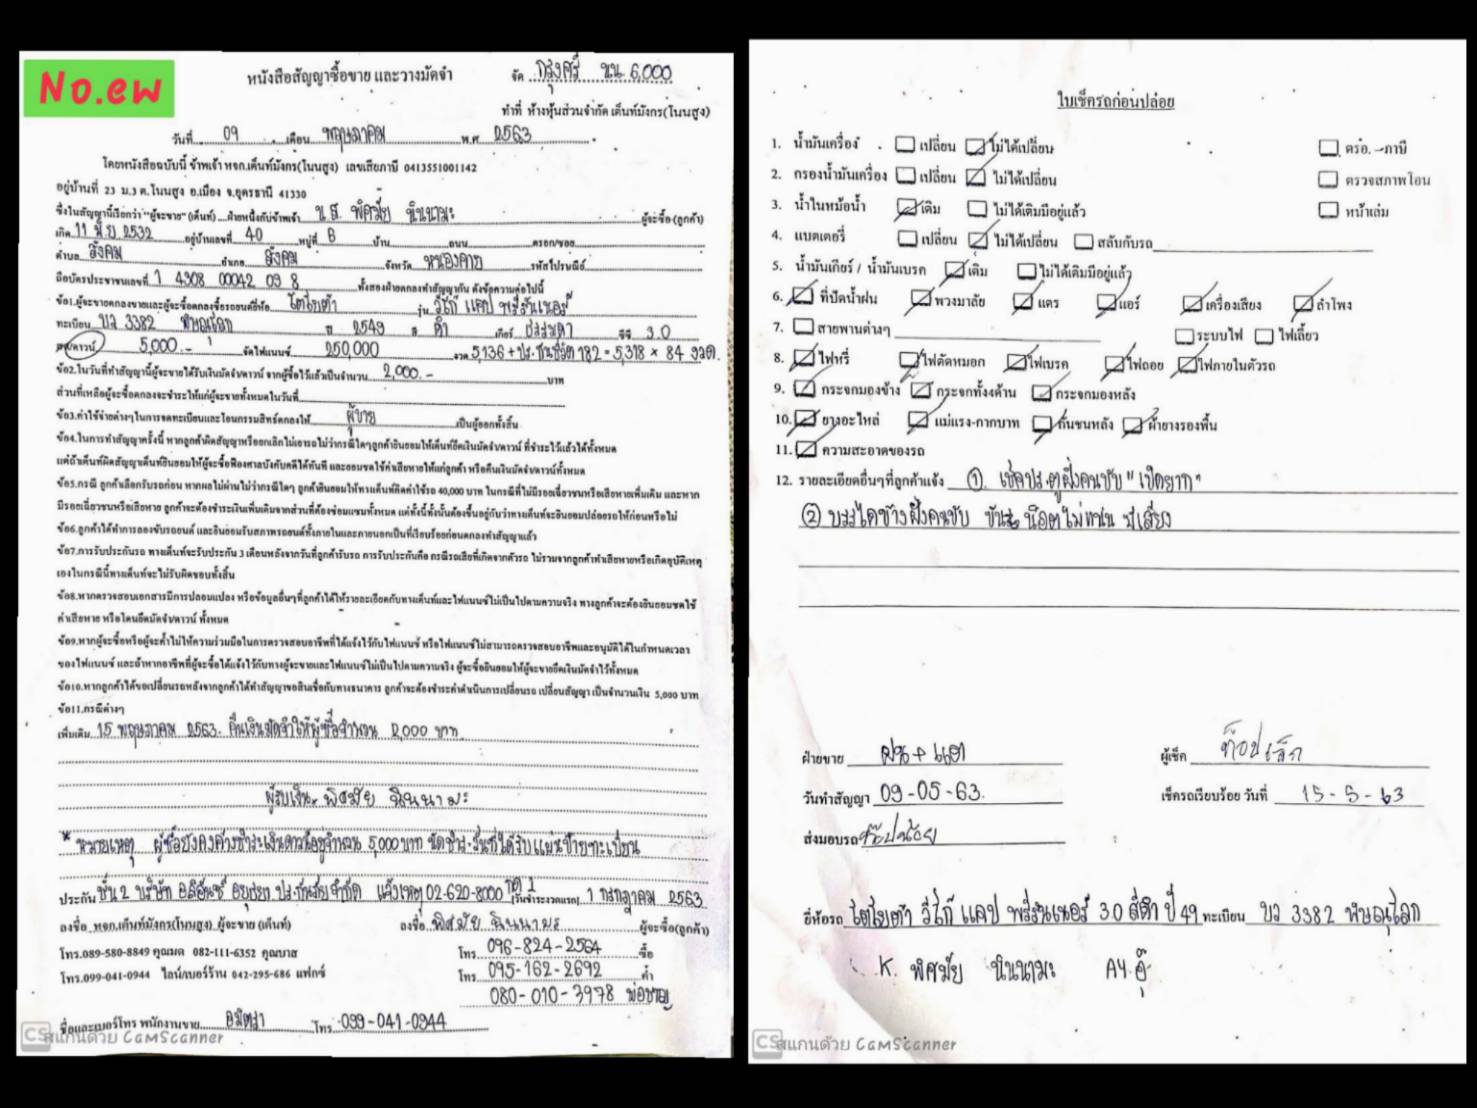 No.ew
หนังสือสัญญาซื้อขาย และวางมัดจำ
จัด กรุงศรี ชน. 6,000
ทำที่ ห้างหุ้นส่วนจำกัด เต็นท์มังกร(โนนสูง)
วันที่ 09 เดือน พฤษภาคม พ.ศ 2563
โดยหนังสือฉบับนี้ ข้าพเจ้า หจก.เต็นท์มังกร(โนนสูง) เลขเสียภาษี 0413551001142
อยู่บ้านที่ 23 ม.3 ต.โนนสูง อ.เมือง จ.อุดรธานี 41330
ซึ่งในสัญญานี้เรียกว่า "ผู้จะขาย" (เต็นท์) ...ฝ่ายหนึ่งกับข้าพเจ้า น.ส. พิศมัย ผู้จะซื้อ (ลูกค้า)
เกิด 11 มิ.ย. 2532 อยู่บ้านเลขที่ 40 หมู่ที่ 8 บ้าน ถนน ตรอก/ซอย
ตำบล สังคม อำเภอ สังคม จังหวัด หนองคาย รหัสไปรษณีย์
ถือบัตรประชาชนเลขที่ 1 4308 00042 09 8 ทั้งสองฝ่ายตกลงทำสัญญากัน ดังข้อความต่อไปนี้
ข้อ1.ผู้จะขายตกลงขายและผู้จะซื้อตกลงซื้อรถยนต์ยี่ห้อ โตโยต้า รุ่น วีโก้ แคป พรีรันเนอร์
ทะเบียน บว 3382 พิษณุโลก ปี 2549 สี ดำ เกียร์ ธรรมดา ซีซี 3.0
สด/ดาวน์ 5,000.- จัดไฟแนนซ์ 250,000 งวด 5,136 + ปร.กันชีวิต 182 = 5,318 x 84 งวด.
ข้อ2.ในวันที่ทำสัญญานี้ผู้จะขายได้รับเงินมัดจำ/ดาวน์ จากผู้ซื้อไว้แล้วเป็นจำนวน 2,000.- บาท
ส่วนที่เหลือผู้จะซื้อตกลงจะชำระให้แก่ผู้จะขายทั้งหมดในวันที่
ข้อ3.ค่าใช้จ่ายต่างๆในการจดทะเบียนและโอนกรรมสิทธิ์ตกลงให้ ผู้ขาย เป็นผู้ออกทั้งสิ้น
ข้อ4.ในการทำสัญญาครั้งนี้ หากลูกค้าผิดสัญญาหรือยกเลิกไม่เอารถไม่ว่ากรณีใดๆลูกค้ายินยอมให้เต็นท์ยึดเงินมัดจำ/ดาวน์ ที่ชำระไว้แล้วได้ทั้งหมด
แต่ถ้าเต็นท์ผิดสัญญาเต็นท์ยินยอมให้ผู้จะซื้อฟ้องศาลบังคับคดีได้ทันที และยอมชดใช้ค่าเสียหายให้แก่ลูกค้า หรือคืนเงินมัดจำ/ดาวน์ทั้งหมด
ข้อ5.กรณี ลูกค้าเลือกรับรถก่อน หากผลไม่ผ่านไม่ว่ากรณีใดๆ ลูกค้ายินยอมให้ทางเต็นท์คิดค่าใช้รถ 40,000 บาท ในกรณีที่ไม่มีรอยเฉี่ยวชนหรือเสียหายเพิ่มเติม และหาก
มีรอยเฉี่ยวชนหรือเสียหาย ลูกค้าจะต้องชำระเงินเพิ่มเติมจากส่วนที่ต้องซ่อมแซมทั้งหมด แต่ทั้งนี้ทั้งนั้นต้องขึ้นอยู่กับว่าทางเต็นท์จะยินยอมปล่อยรถให้ก่อนหรือไม่
ข้อ6.ลูกค้าได้ทำการลองขับรถยนต์ และยินยอมรับสภาพรถยนต์ทั้งภายในและภายนอกเป็นที่เรียบร้อยก่อนตกลงทำสัญญาแล้ว
ข้อ7.การรับประกันรถ ทางเต็นท์จะรับประกัน 3 เดือนหลังจากวันที่ลูกค้ารับรถ การรับประกันคือ กรณีรถเสียที่เกิดจากตัวรถ ไม่รวมจากลูกค้าทำเสียหายหรือเกิดอุบัติเหตุ
เองในกรณีนี้ทางเต็นท์จะไม่รับผิดชอบทั้งสิ้น
ข้อ8.หากตรวจสอบเอกสารมีการปลอมแปลง หรือข้อมูลอื่นๆที่ลูกค้าได้ให้รายละเอียดกับทางเต็นท์และไฟแนนซ์ไม่เป็นไปตามความจริง ทางลูกค้าจะต้องยินยอมชดใช้
ค่าเสียหาย หรือโดนยึดมัดจำ/ดาวน์ ทั้งหมด
ข้อ9.หากผู้จะซื้อหรือผู้จะค้ำไม่ให้ความร่วมมือในการตรวจสอบอาชีพที่ได้แจ้งไว้กับไฟแนนซ์ หรือไฟแนนซ์ไม่สามารถตรวจสอบอาชีพและอนุมัติได้ในกำหนดเวลา
ของไฟแนนซ์ และถ้าหากอาชีพที่ผู้จะซื้อได้แจ้งไว้กับทางผู้จะขายและไฟแนนซ์ไม่เป็นไปตามความจริง ผู้จะซื้อยินยอมให้ผู้จะขายยึดเงินมัดจำไว้ทั้งหมด
ข้อ10.หากลูกค้าได้ขอเปลี่ยนรถหลังจากลูกค้าได้ทำสัญญาขอสินเชื่อกับทางธนาคาร ลูกค้าจะต้องชำระค่าดำเนินการเปลี่ยนรถ เปลี่ยนสัญญา เป็นจำนวนเงิน 5,000 บาท
ข้อ11.กรณีต่างๆ
เพิ่มเติม 15 พฤษภาคม 2563. คืนเงินมัดจำให้ผู้ซื้อจำนวน 2,000 บาท
ผู้รับเงิน พิศมัย
* หมายเหตุ ผู้ซื้อยังคงค้างชำระเงินดาวน์อยู่จำนวน 5,000 บาท นัดชำระวันที่ได้รับแผ่นป้ายทะเบียน
ประกัน ชั้น 2 บริษัท อลิอันซ์ อยุธยา ประกันภัย จำกัด แจ้งเหตุ 02-620-8000 กด 1 (วันชำระงวดแรก) 1 กรกฎาคม 2563
ลงชื่อ หจก.เต็นท์มังกร(โนนสูง) ผู้จะขาย (เต็นท์) ลงชื่อ พิศมัย ผู้จะซื้อ(ลูกค้า)
โทร.089-580-8849 คุณมด 082-111-6352 คุณบาส โทร 096-824-2564 ซื้อ
โทร.099-041-0944 ไลน์/เบอร์ร้าน 042-295-686 แฟกซ์ โทร 095-162-2692 ค้ำ
080-010-3978
ชื่อและเบอร์โทร พนักงานขาย โทร. 099-041-0944
CS สแกนด้วย CamScanner
ใบเช็ครถก่อนปล่อย
1. น้ำมันเครื่อง เปลี่ยน ไม่ได้เปลี่ยน ตรอ. -ภาษี
2. กรองน้ำมันเครื่อง เปลี่ยน ไม่ได้เปลี่ยน ตรวจสภาพโอน
3. น้ำในหม้อน้ำ เติม ไม่ได้เติมมีอยู่แล้ว หน้าเล่ม
4. แบตเตอรี่ เปลี่ยน ไม่ได้เปลี่ยน สลับกับรถ
5. น้ำมันเกียร์ / น้ำมันเบรค เติม ไม่ได้เติมมีอยู่แล้ว
6. ที่ปัดน้ำฝน พวงมาลัย แตร แอร์ เครื่องเสียง ลำโพง
7. สายพานต่างๆ ระบบไฟ ไฟเลี้ยว
8. ไฟหรี่ ไฟตัดหมอก ไฟเบรค ไฟถอย ไฟภายในตัวรถ
9. กระจกมองข้าง กระจกทั้ง4ด้าน กระจกมองหลัง
10. ยางอะไหล่ แม่แรง-กากบาท กันชนหลัง ผ้ายางรองพื้น
11. ความสะอาดของรถ
12. รายละเอียดอื่นๆที่ลูกค้าแจ้ง 1. เช็คประตูฝั่งคนขับ "เปิดยาก"
2 บรรไดข้างฝั่งคนขับ ขันน๊อตไม่แน่น มีเสียง
ฝ่ายขาย ผู้เช็ค ท็อปเล็ก
วันทำสัญญา 09-05-63. เช็ครถเรียบร้อย วันที่ 15-5-63
ส่งมอบรถ
ยี่ห้อรถ โตโยต้า วีโก้ แคป พรีรันเนอร์ 3.0 สีดำ ปี 49 ทะเบียน บว 3382 พิษณุโลก
K. พิศมัย
CS สแกนด้วย CamScanner